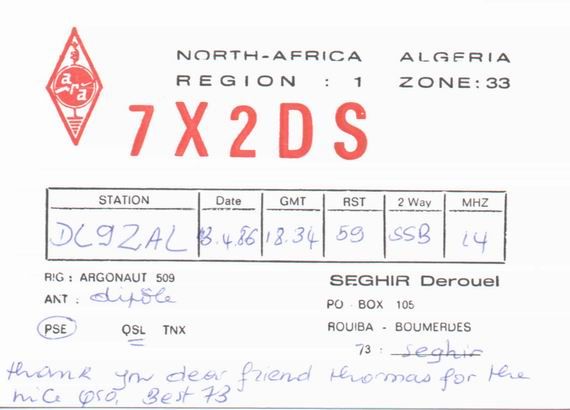 ara
NORTH-AFRICA ALGERIA
REGION : 1 ZONE: 33
7X2DS
STATION Date GMT RST 2 Way MHZ
DL9ZAL 3.4.86 18.34 59 SSB 14
RIG : ARGONAUT 509
ANT : dipôle
PSE QSL TNX
SEGHIR Derouel
PO · BOX 105
ROUIBA - BOUMERDES
73 : seghir
thank you dear friend thomas for the
nice qso, Best 73